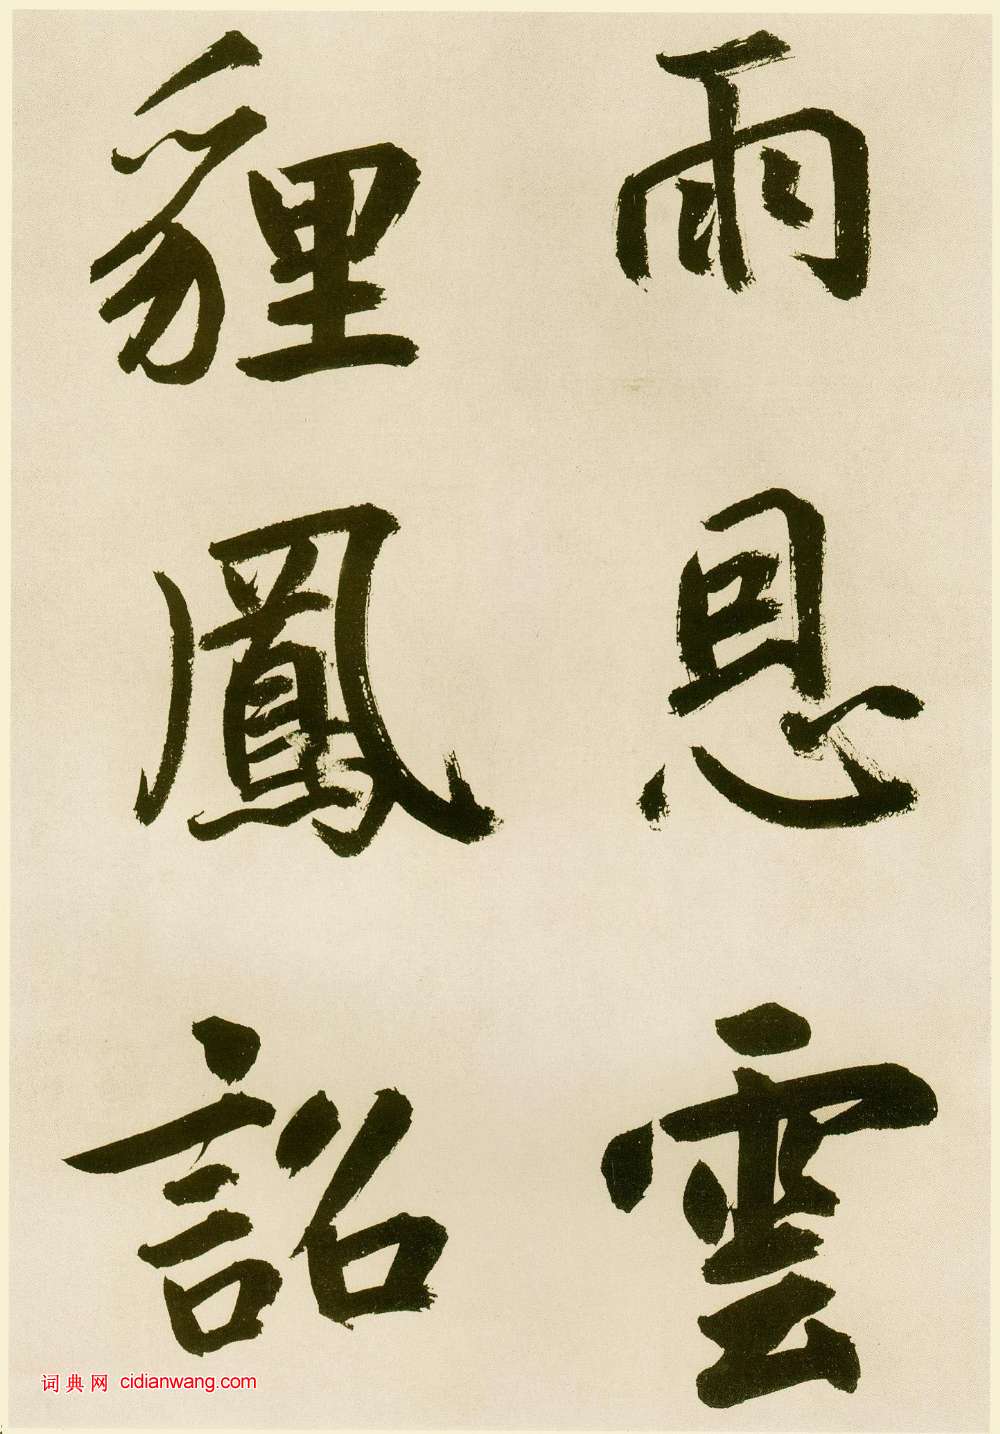 雨恩雲
貍鳳詔
词典网 cidianwang.com